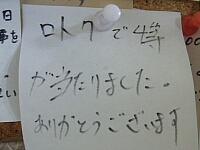 ロト7で4等
が当たりました。
ありがとうございます
日